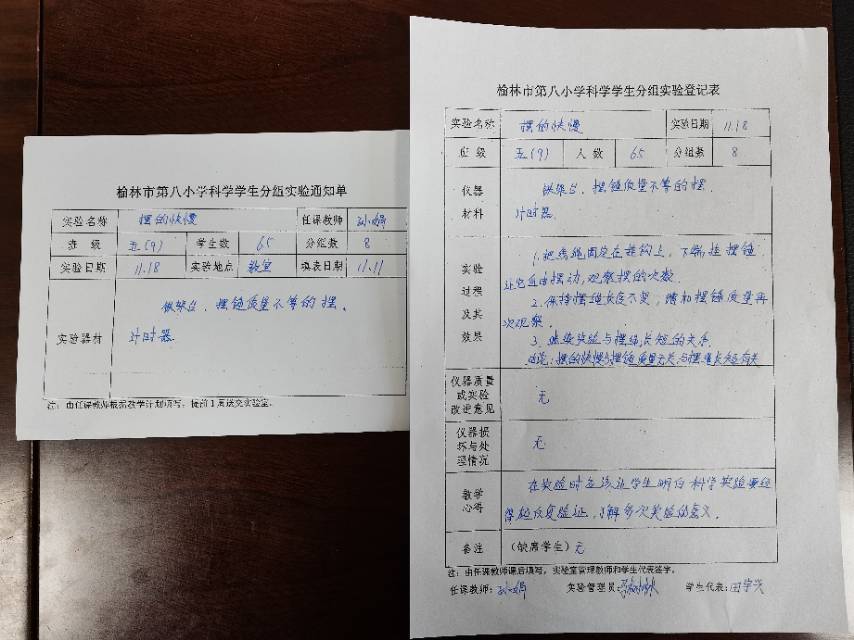 榆林市第八小学科学学生分组实验通知单
实验名称 摆的快慢 任课教师 孙娟
班级 五(9) 学生数 65 分组数 8
实验日期 11.18 实验地点 教室 填表日期 11.11
实验器材 铁架台、摆锤质量不等的摆、
计时器
注：由任课教师根据教学计划填写，提前1周送交实验室。
榆林市第八小学科学学生分组实验登记表
实验名称 摆的快慢 实验日期 11.18
班级 五(9) 人数 65 分组数 8
仪器材料 铁架台、摆锤质量不等的摆、
计时器
实验过程及其效果 1.把线绳固定在挂钩上，下端挂摆锤
让它自由摆动，观察摆的次数
2.保持摆绳长度不变，增加摆锤质量再
次观察。
3.继续实验与摆绳长短的关系
结论：摆的快慢与摆锤质量无关，与摆绳长短有关
仪器质量或实验改进意见 无
仪器损坏与处理情况 无
教学心得 在实验时应该让学生明白科学实验要经
得起反复验证，了解多次实验的意义。
备注 （缺席学生）无
注：由任课教师课后填写，实验室管理教师和学生代表签字。
任课教师：孙娟 实验管理员： 学生代表：田